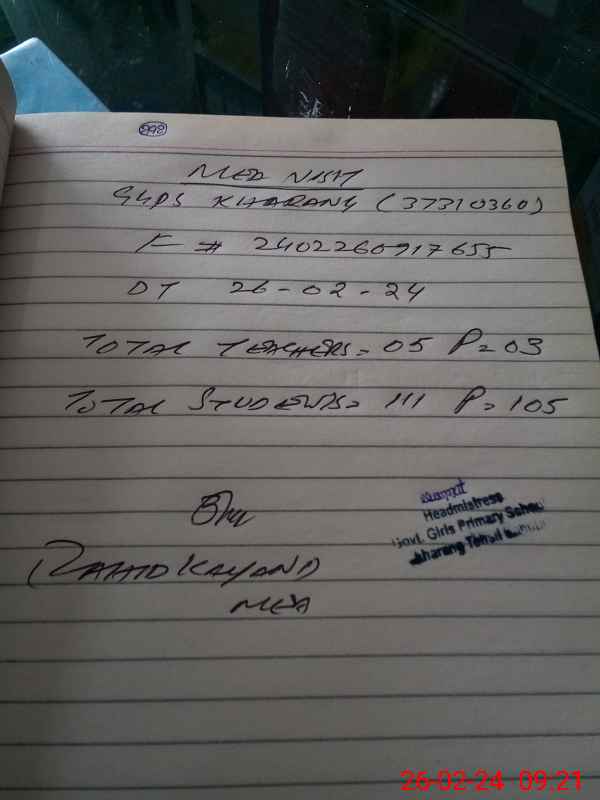 298
MEA VISIT
GGPS KHARANG (37310360)
F # 2402260917655
DT 26-02-24
TOTAL TEACHERS= 05 P=03
TOTAL STUDENTS= 111 P= 105
Headmistress
Govt. Girls Primary School
Kharang Tehsil
MEA
26-02-24 09:21